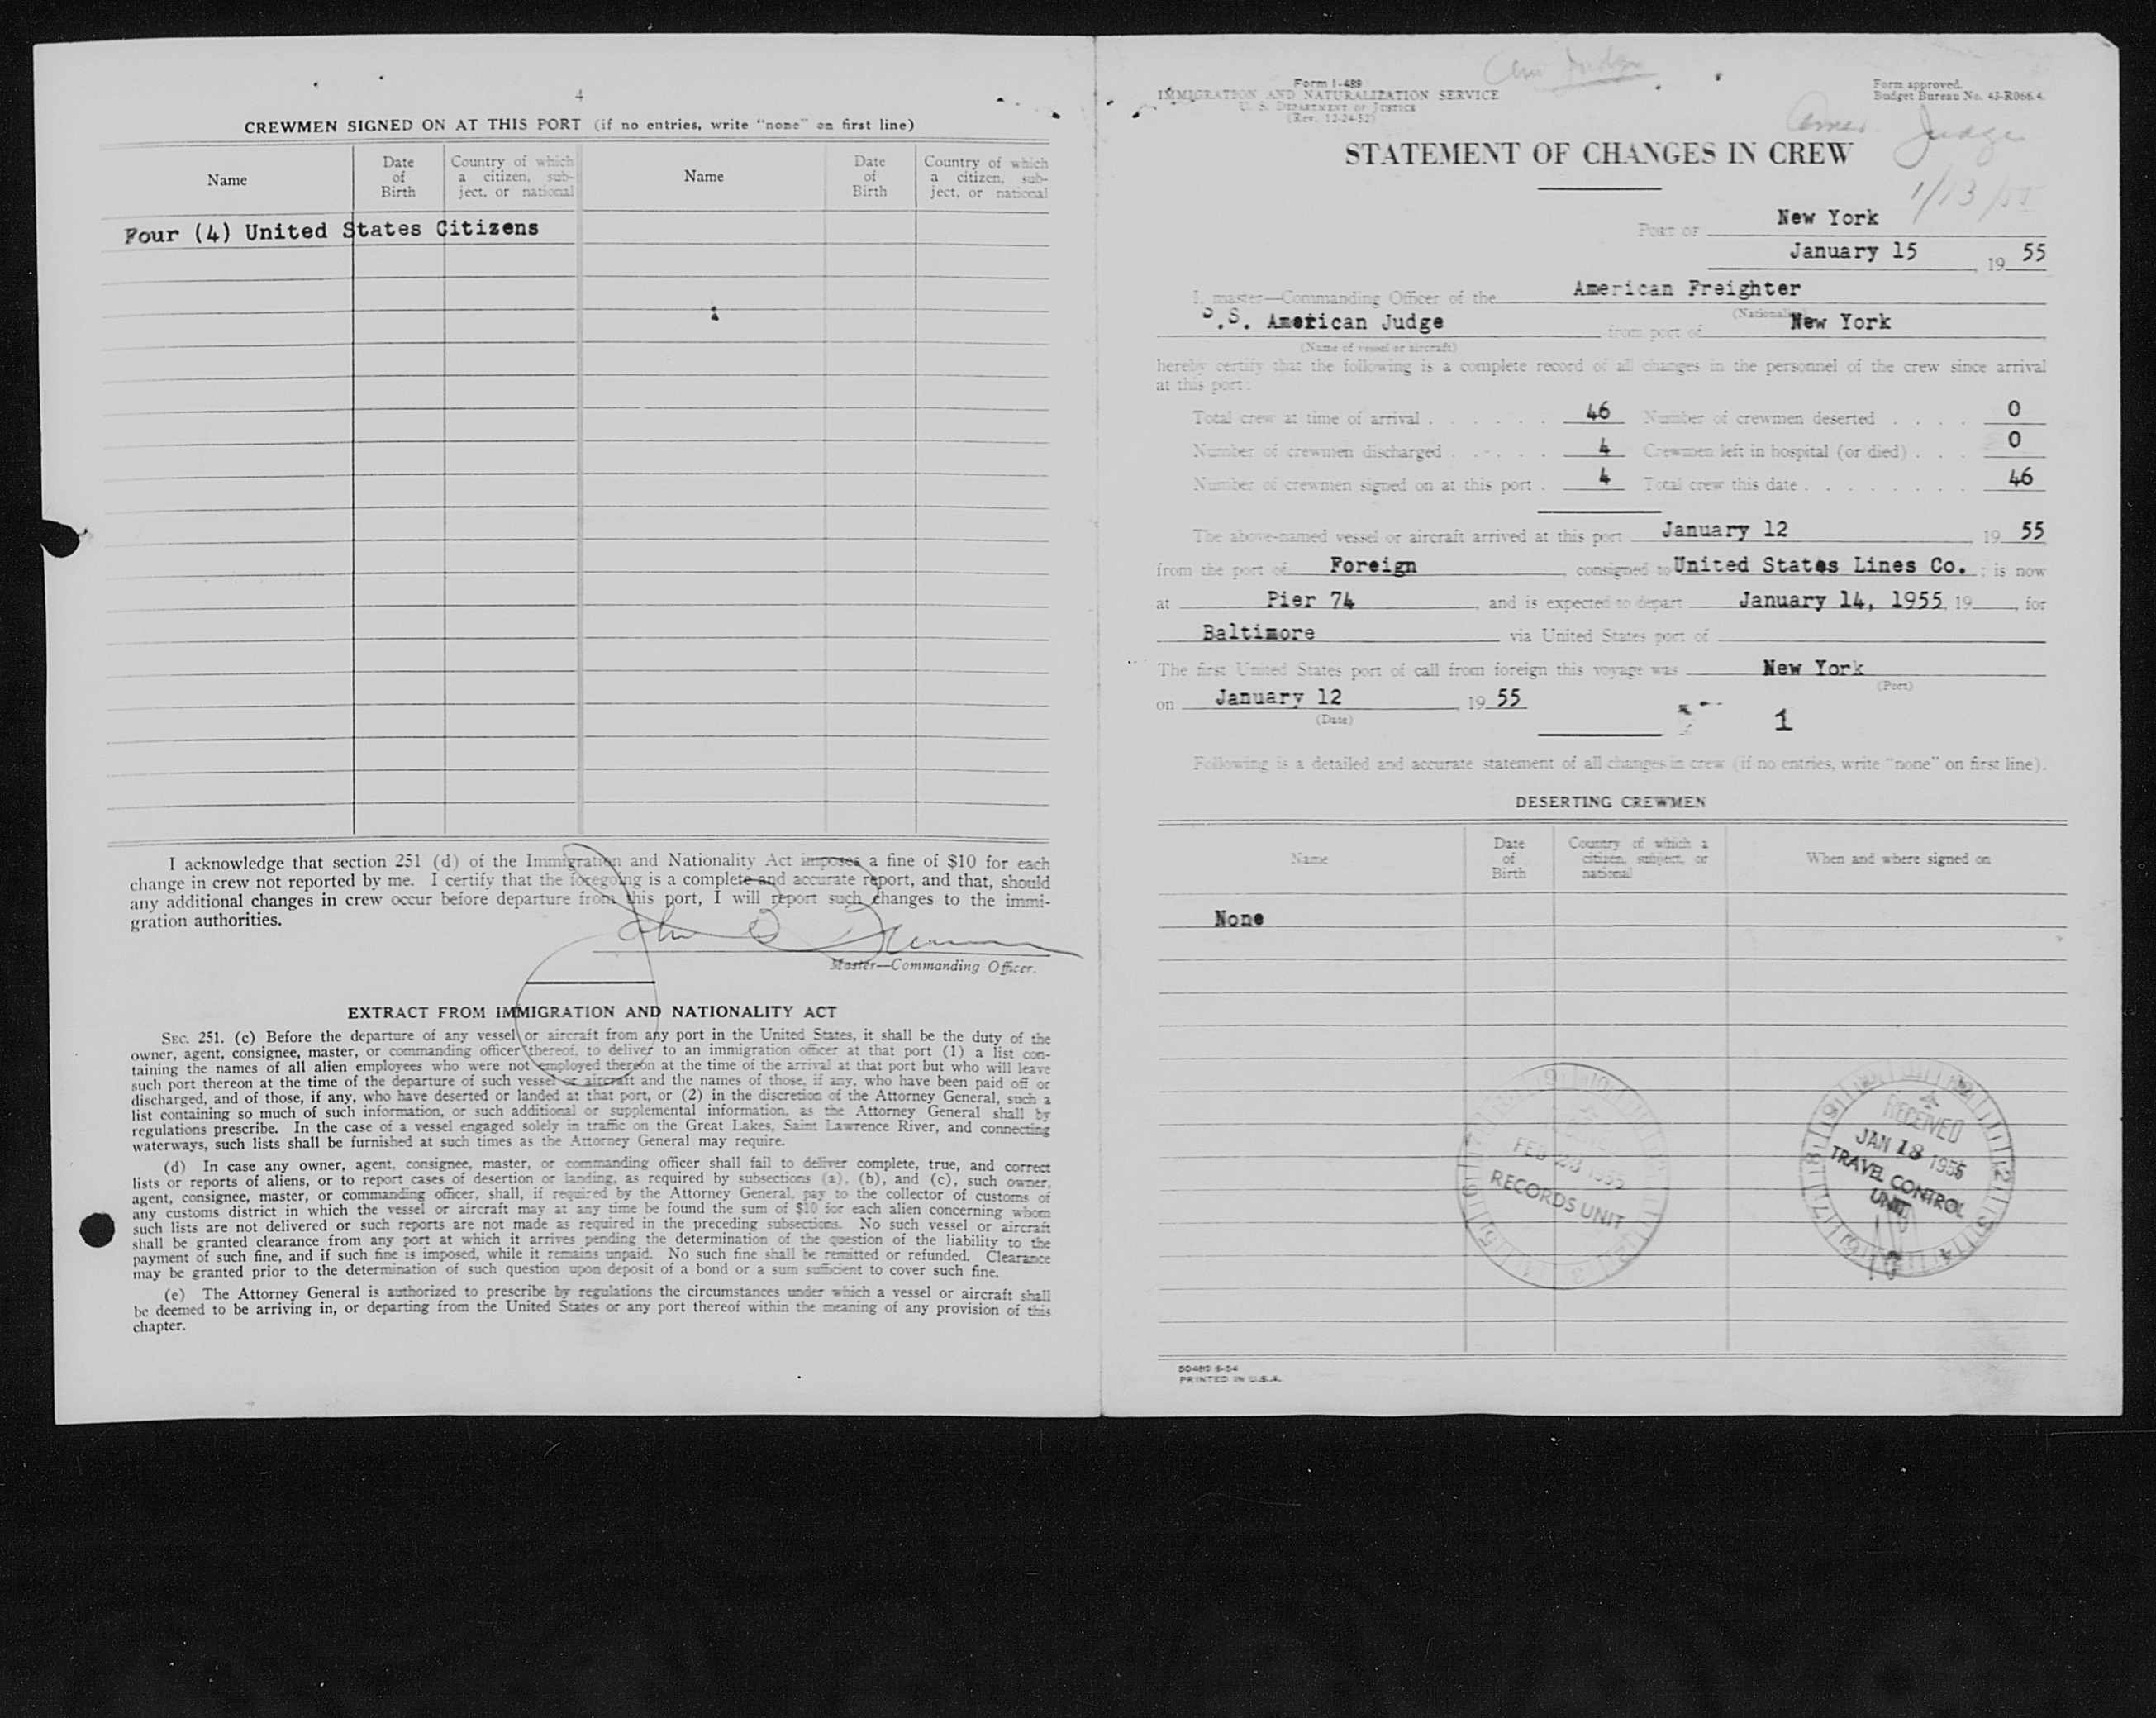 4
CREWMEN SIGNED ON AT THIS PORT (if no entries, write "none" on first line)
Name
Date of Birth
Country of which a citizen, sub-ject, or national
Name
Date of Birth
Country of which a citizen, sub-ject, or national
Four (4) United States Citizens
I acknowledge that section 251 (d) of the Immigration and Nationality Act imposes a fine of $10 for each
change in crew not reported by me. I certify that the foregoing is a complete and accurate report, and that, should
any additional changes in crew occur before departure from this port, I will report such changes to the immi-
gration authorities.
Master—Commanding Officer.
EXTRACT FROM IMMIGRATION AND NATIONALITY ACT
SEC. 251. (c) Before the departure of any vessel or aircraft from any port in the United States, it shall be the duty of the
owner, agent, consignee, master, or commanding officer thereof, to deliver to an immigration officer at that port (1) a list con-
taining the names of all alien employees who were not employed thereon at the time of the arrival at that port but who will leave
such port thereon at the time of the departure of such vessel or aircraft and the names of those, if any, who have been paid off or
discharged, and of those, if any, who have deserted or landed at that port, or (2) in the discretion of the Attorney General, such a
list containing so much of such information, or such additional or supplemental information, as the Attorney General shall by
regulations prescribe. In the case of a vessel engaged solely in traffic on the Great Lakes, Saint Lawrence River, and connecting
waterways, such lists shall be furnished at such times as the Attorney General may require.
(d) In case any owner, agent, consignee, master, or commanding officer shall fail to deliver complete, true, and correct
lists or reports of aliens, or to report cases of desertion or landing, as required by subsections (a), (b), and (c), such owner,
agent, consignee, master, or commanding officer, shall, if required by the Attorney General, pay to the collector of customs of
any customs district in which the vessel or aircraft may at any time be found the sum of $10 for each alien concerning whom
such lists are not delivered or such reports are not made as required in the preceding subsections. No such vessel or aircraft
shall be granted clearance from any port at which it arrives pending the determination of the question of the liability to the
payment of such fine, and if such fine is imposed, while it remains unpaid. No such fine shall be remitted or refunded. Clearance
may be granted prior to the determination of such question upon deposit of a bond or a sum sufficient to cover such fine.
(e) The Attorney General is authorized to prescribe by regulations the circumstances under which a vessel or aircraft shall
be deemed to be arriving in, or departing from the United States or any port thereof within the meaning of any provision of this
chapter.
Judge
Form I-489
IMMIGRATION AND NATURALIZATION SERVICE
U. S. DEPARTMENT OF JUSTICE
(Rev. 12-24-52)
Form approved.
Budget Bureau No. 43-R066.4.
Judge
1/13/55
STATEMENT OF CHANGES IN CREW
PORT OF New York
January 15, 19 55
I, master—Commanding Officer of the American Freighter
S.S. American Judge from port of New York
(Name of vessel or aircraft)
hereby certify that the following is a complete record of all changes in the personnel of the crew since arrival
at this port:
Total crew at time of arrival 46 Number of crewmen deserted 0
Number of crewmen discharged 4 Crewmen left in hospital (or died) 0
Number of crewmen signed on at this port 4 Total crew this date 46
The above-named vessel or aircraft arrived at this port January 12, 19 55
from the port of Foreign, consigned to United States Lines Co.; is now
at Pier 74, and is expected to depart January 14, 1955, 19 , for
Baltimore via United States port of
The first United States port of call from foreign this voyage was New York
(Port)
on January 12, 19 55
(Date)
1
Following is a detailed and accurate statement of all changes in crew (if no entries, write "none" on first line).
DESERTING CREWMEN
Name
Date of Birth
Country of which a citizen, subject, or national
When and where signed on
None
FEB 28 1955
RECORDS UNIT
RECEIVED
JAN 18 1955
TRAVEL CONTROL
UNIT
PRINTED IN U.S.A.